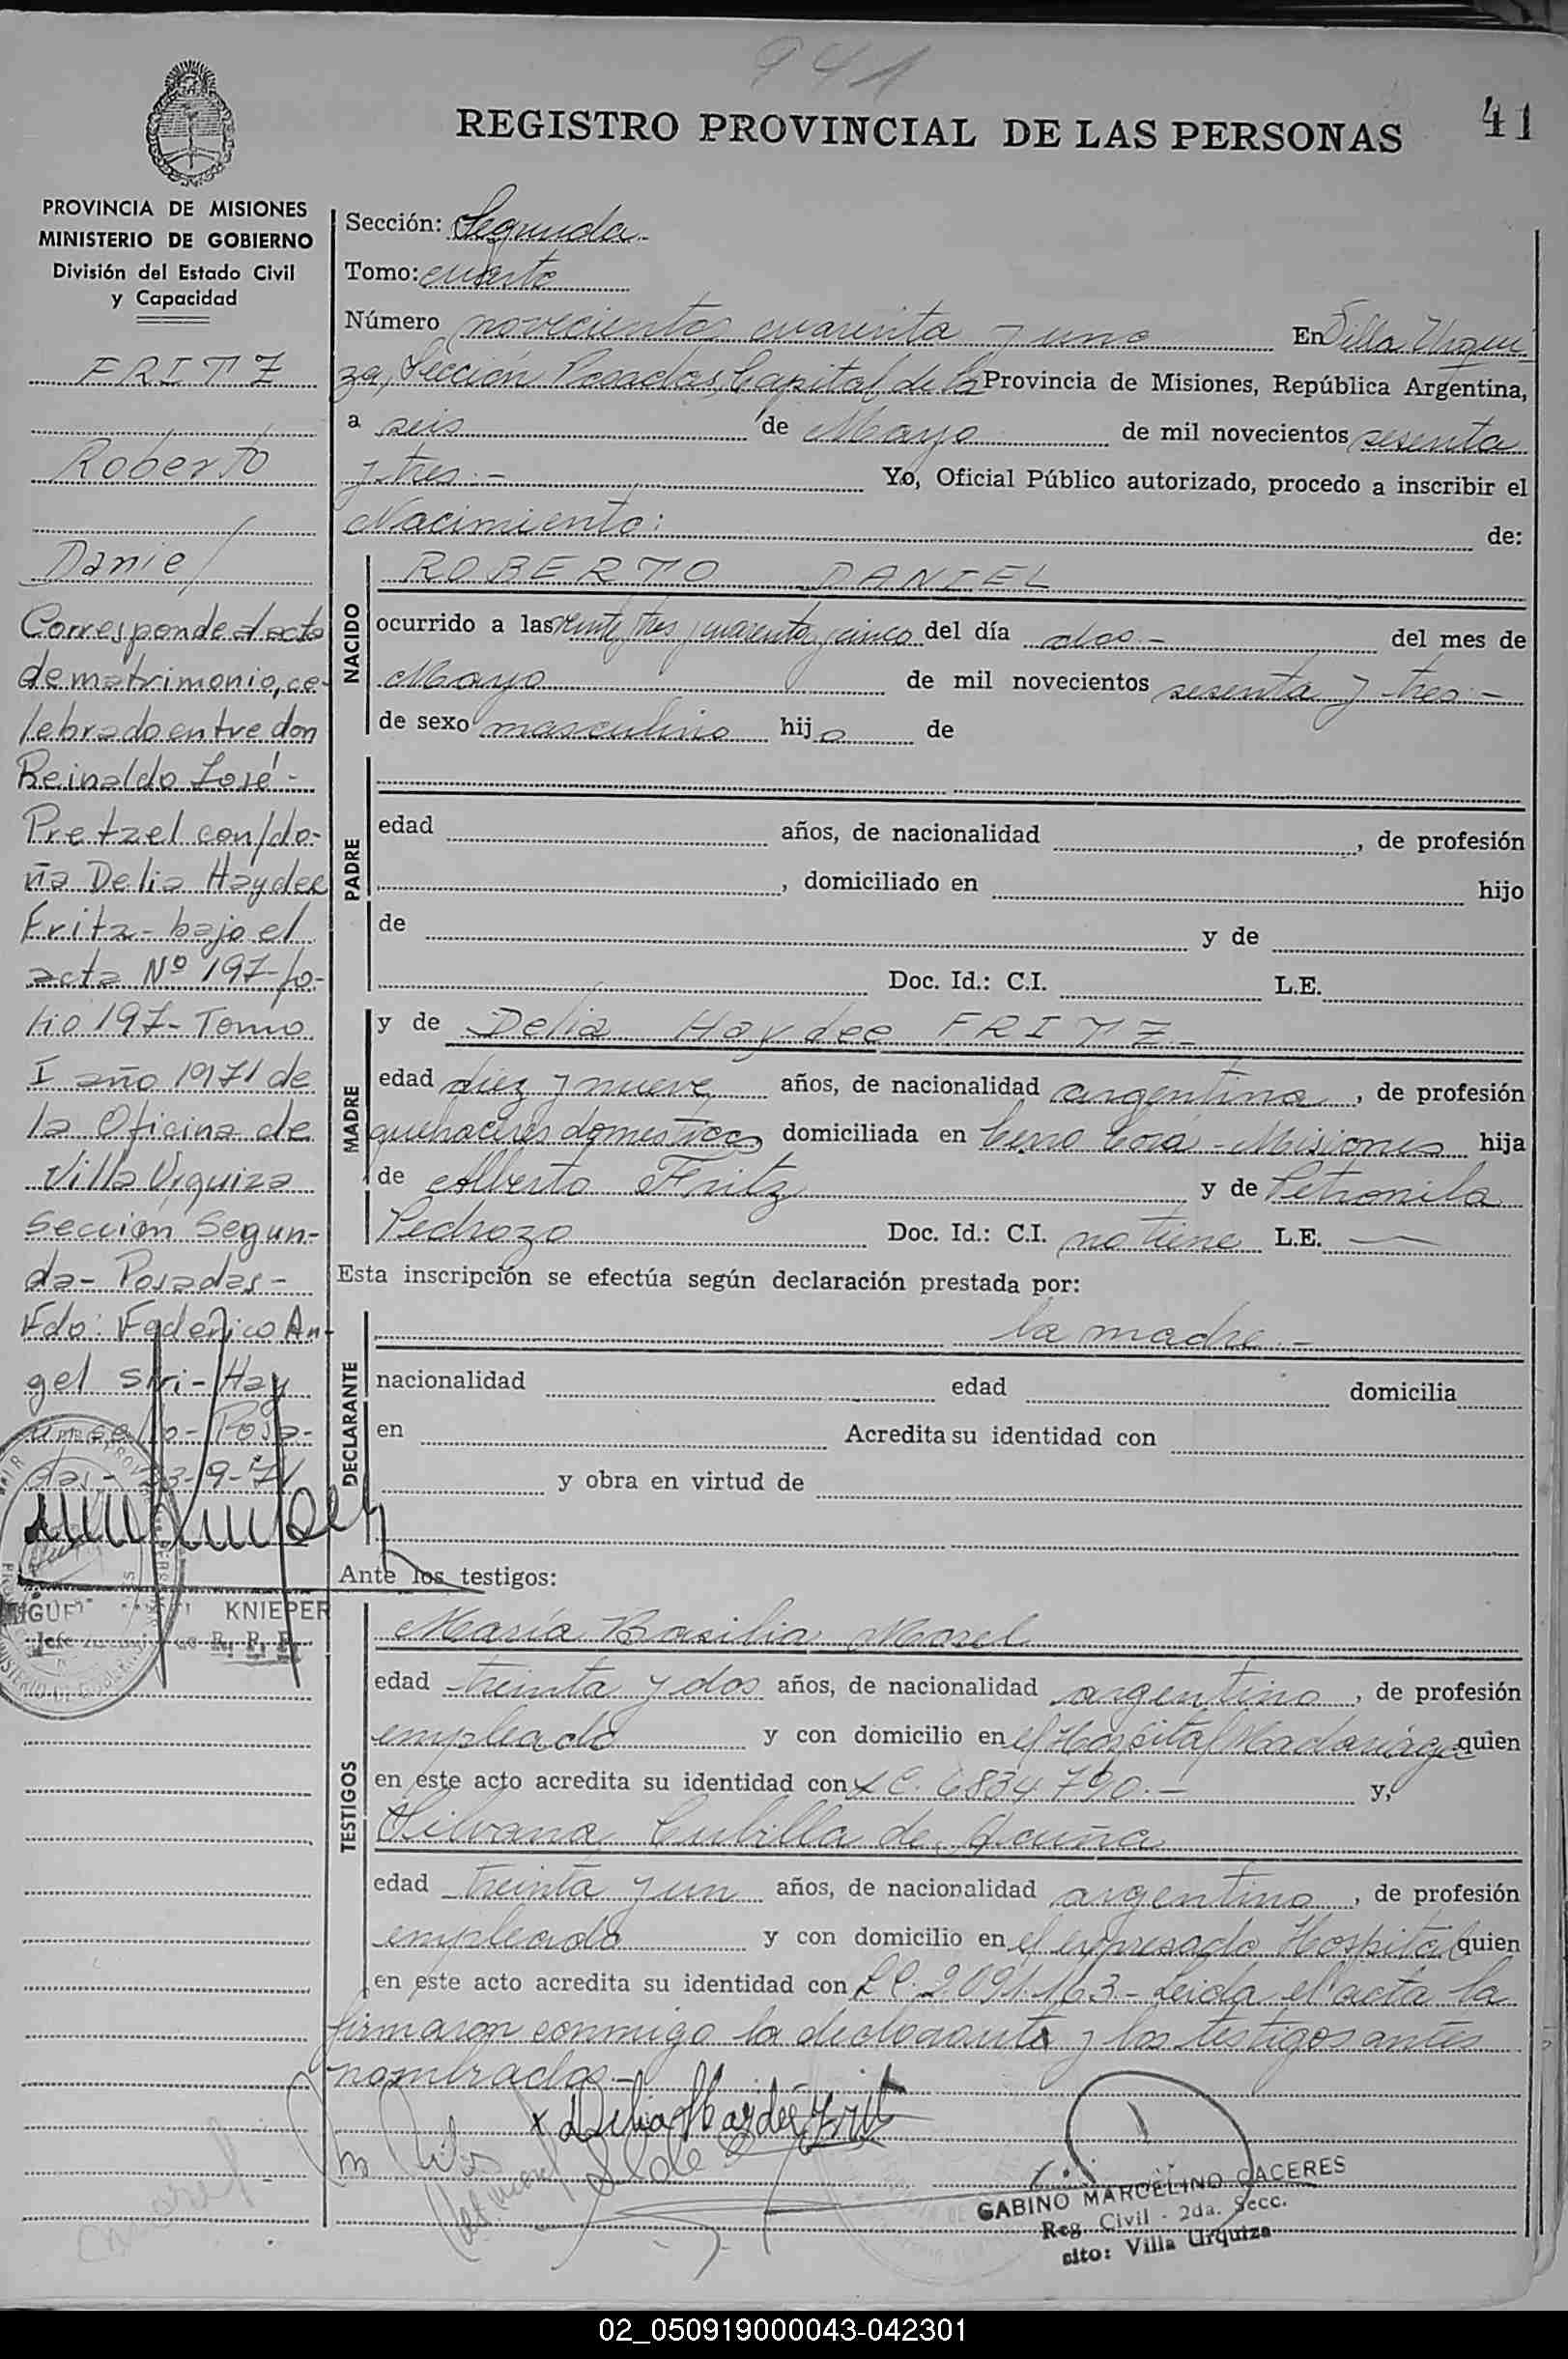 941
41
REGISTRO PROVINCIAL DE LAS PERSONAS
PROVINCIA DE MISIONES
MINISTERIO DE GOBIERNO
División del Estado Civil
y Capacidad
FRITZ
Roberto
Daniel
Corresponde al acta
de matrimonio, ce-
lebrado entre don
Reinaldo José-
Pretzel con/do-
ña Delia Haydee
Fritz - bajo el
acta Nº 197- fo-
lio 197- Tomo
I año 1971 de
la Oficina de
Villa Urquiza
Sección Segun-
da- Posadas-
Fdo: Federico An-
gel Siri- Hay
un sello- Posa-
das- 23-9-71
KNIEPER
Jefe R. P. P.
Sección: Segunda-
Tomo: cuarto
Número novecientos cuarenta y uno En Villa Urqui
za, Sección Posadas, Capital de la Provincia de Misiones, República Argentina,
a seis de Mayo de mil novecientos sesenta
y tres.- Yo, Oficial Público autorizado, procedo a inscribir el
Nacimiento: de:
NACIDO
ROBERTO DANIEL
ocurrido a las veinte, tres y cuarenta y cinco del día dos- del mes de
Mayo de mil novecientos sesenta y tres.-
de sexo masculino hijo de
PADRE
edad años, de nacionalidad , de profesión
, domiciliado en hijo
de y de
Doc. Id.: C.I. L.E.
MADRE
y de Delia Haydee FRITZ.-
edad diez y nueve años, de nacionalidad argentina, de profesión
quehaceres domesticos domiciliada en Cerro Corá - Misiones hija
de Alberto Fritz y de Petronila
Pedrozo Doc. Id.: C.I. no tiene L.E. —
Esta inscripción se efectúa según declaración prestada por:
DECLARANTE
la madre.-
nacionalidad edad domicilia
en Acredita su identidad con
y obra en virtud de
Ante los testigos:
TESTIGOS
María Basilia Morel
edad treinta y dos años, de nacionalidad argentino, de profesión
empleado y con domicilio en el Hospital Madariaga quien
en este acto acredita su identidad con LC. 6834.790.- y,
Silvana Cubilla de Acuña
edad treinta y un años, de nacionalidad argentino, de profesión
empleado y con domicilio en el expresado Hospital quien
en este acto acredita su identidad con LC. 2.091.163- Leida el acta la
firmaron conmigo la declarante y los testigos antes
nombrados.-
x Delia Haydee Fritz
GABINO MARCELINO CACERES
Reg. Civil - 2da. Secc.
sito: Villa Urquiza
02_050919000043-042301